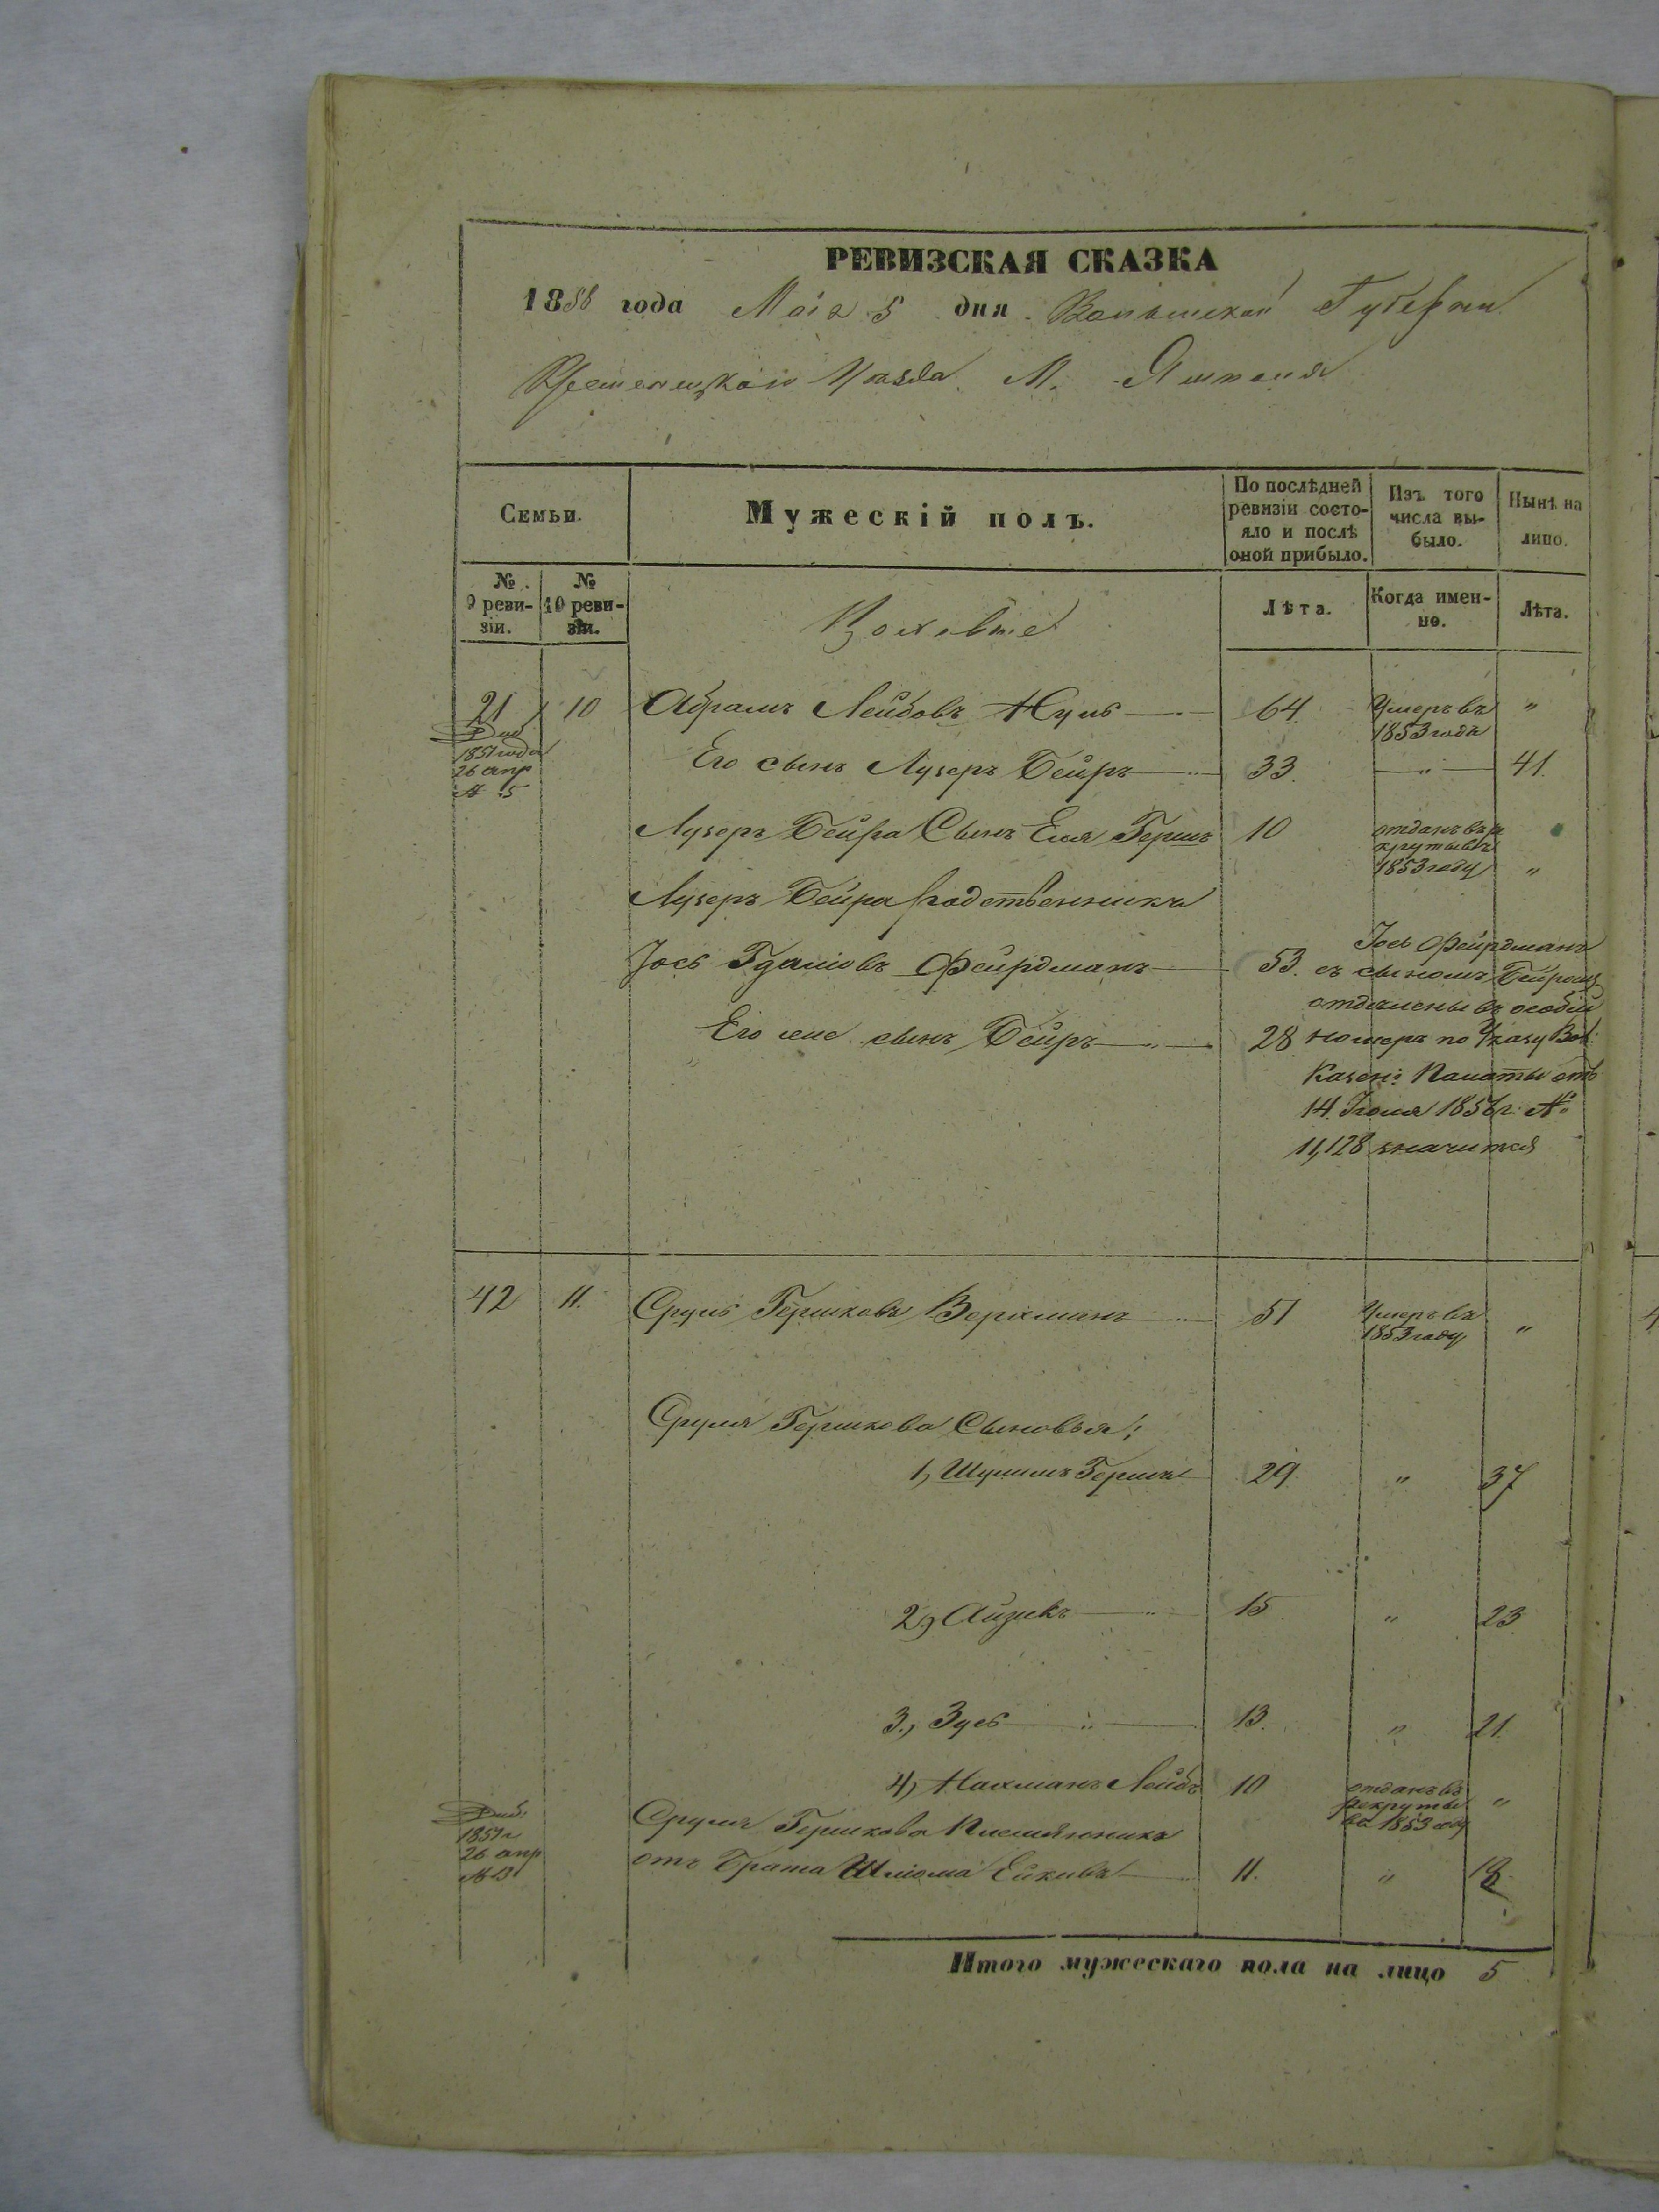 РЕВИЗСКАЯ СКАЗКА
1858 года Маія 5 дня Волынской Губерніи
Кременецкаго Уѣзда М. Ямполя
Семьи.
Мужескій полъ.
По послѣдней ревизіи состо-
яло и послѣ
оной прибыло.
Изъ того
числа вы-
было.
Нынѣ на
лицо.
№
9 реви-
зіи.
№
10 реви-
зіи.
Лѣта.
Когда имен-
но.
Лѣта.
21 10 Абрамъ Лейбовъ Нуль 64 Умеръ въ 1853 годѣ "
1851 года
26 апр
№ 5
Его сынъ Лузеръ Бейръ 33. " 41.
Лузеръ Бейра Сынъ Еля Гершъ 10 отданъ въ рекруты въ 1853 году "
Лузеръ Бейра родственника
Іось Фейрдманъ 53.
Его же сынъ Бейръ 28
Іось Фейрдманъ
съ сыномъ Бейромъ
отдѣлены въ особый
номеръ по Указу Вол.
Казен: Палаты отъ
14 Іюля 1856 г. №
11,128 значится
42 11. Сруль Гершковъ Верхманъ 51 Умеръ въ 1853 году "
Сруля Гершкова Сыновья:
1, Шулимъ Гершъ 29 " 37
2, Айзикъ " 15 " 23
3, Зусь " 13. " 21.
4, Нахманъ Лейбъ 10 отданъ въ рекруты въ 1853 году "
1851 г
26 апр
Сруля Гершкова Племянникъ
отъ брата Шлiома 11. " 19
Итого мужескаго пола на лицо 5